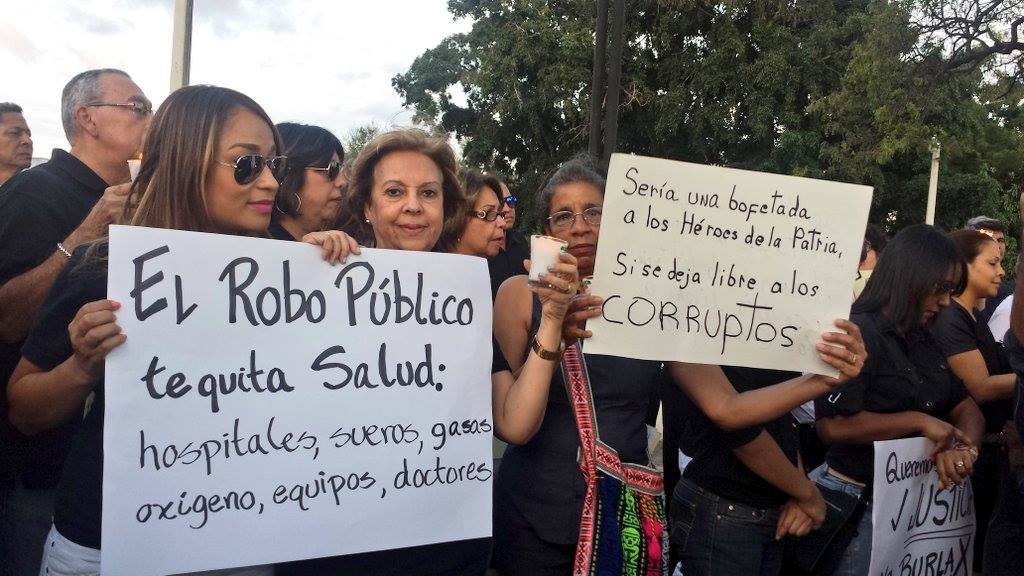 EL Robo Público
te quita Salud:
hospitales, sueros, gasas
oxígeno, equipos, doctores
Sería una bofetada
a los Héroes de la Patria,
Si se deja libre, a los
CORRUPTOS
Queremos
JUSTICIA
BURLAX